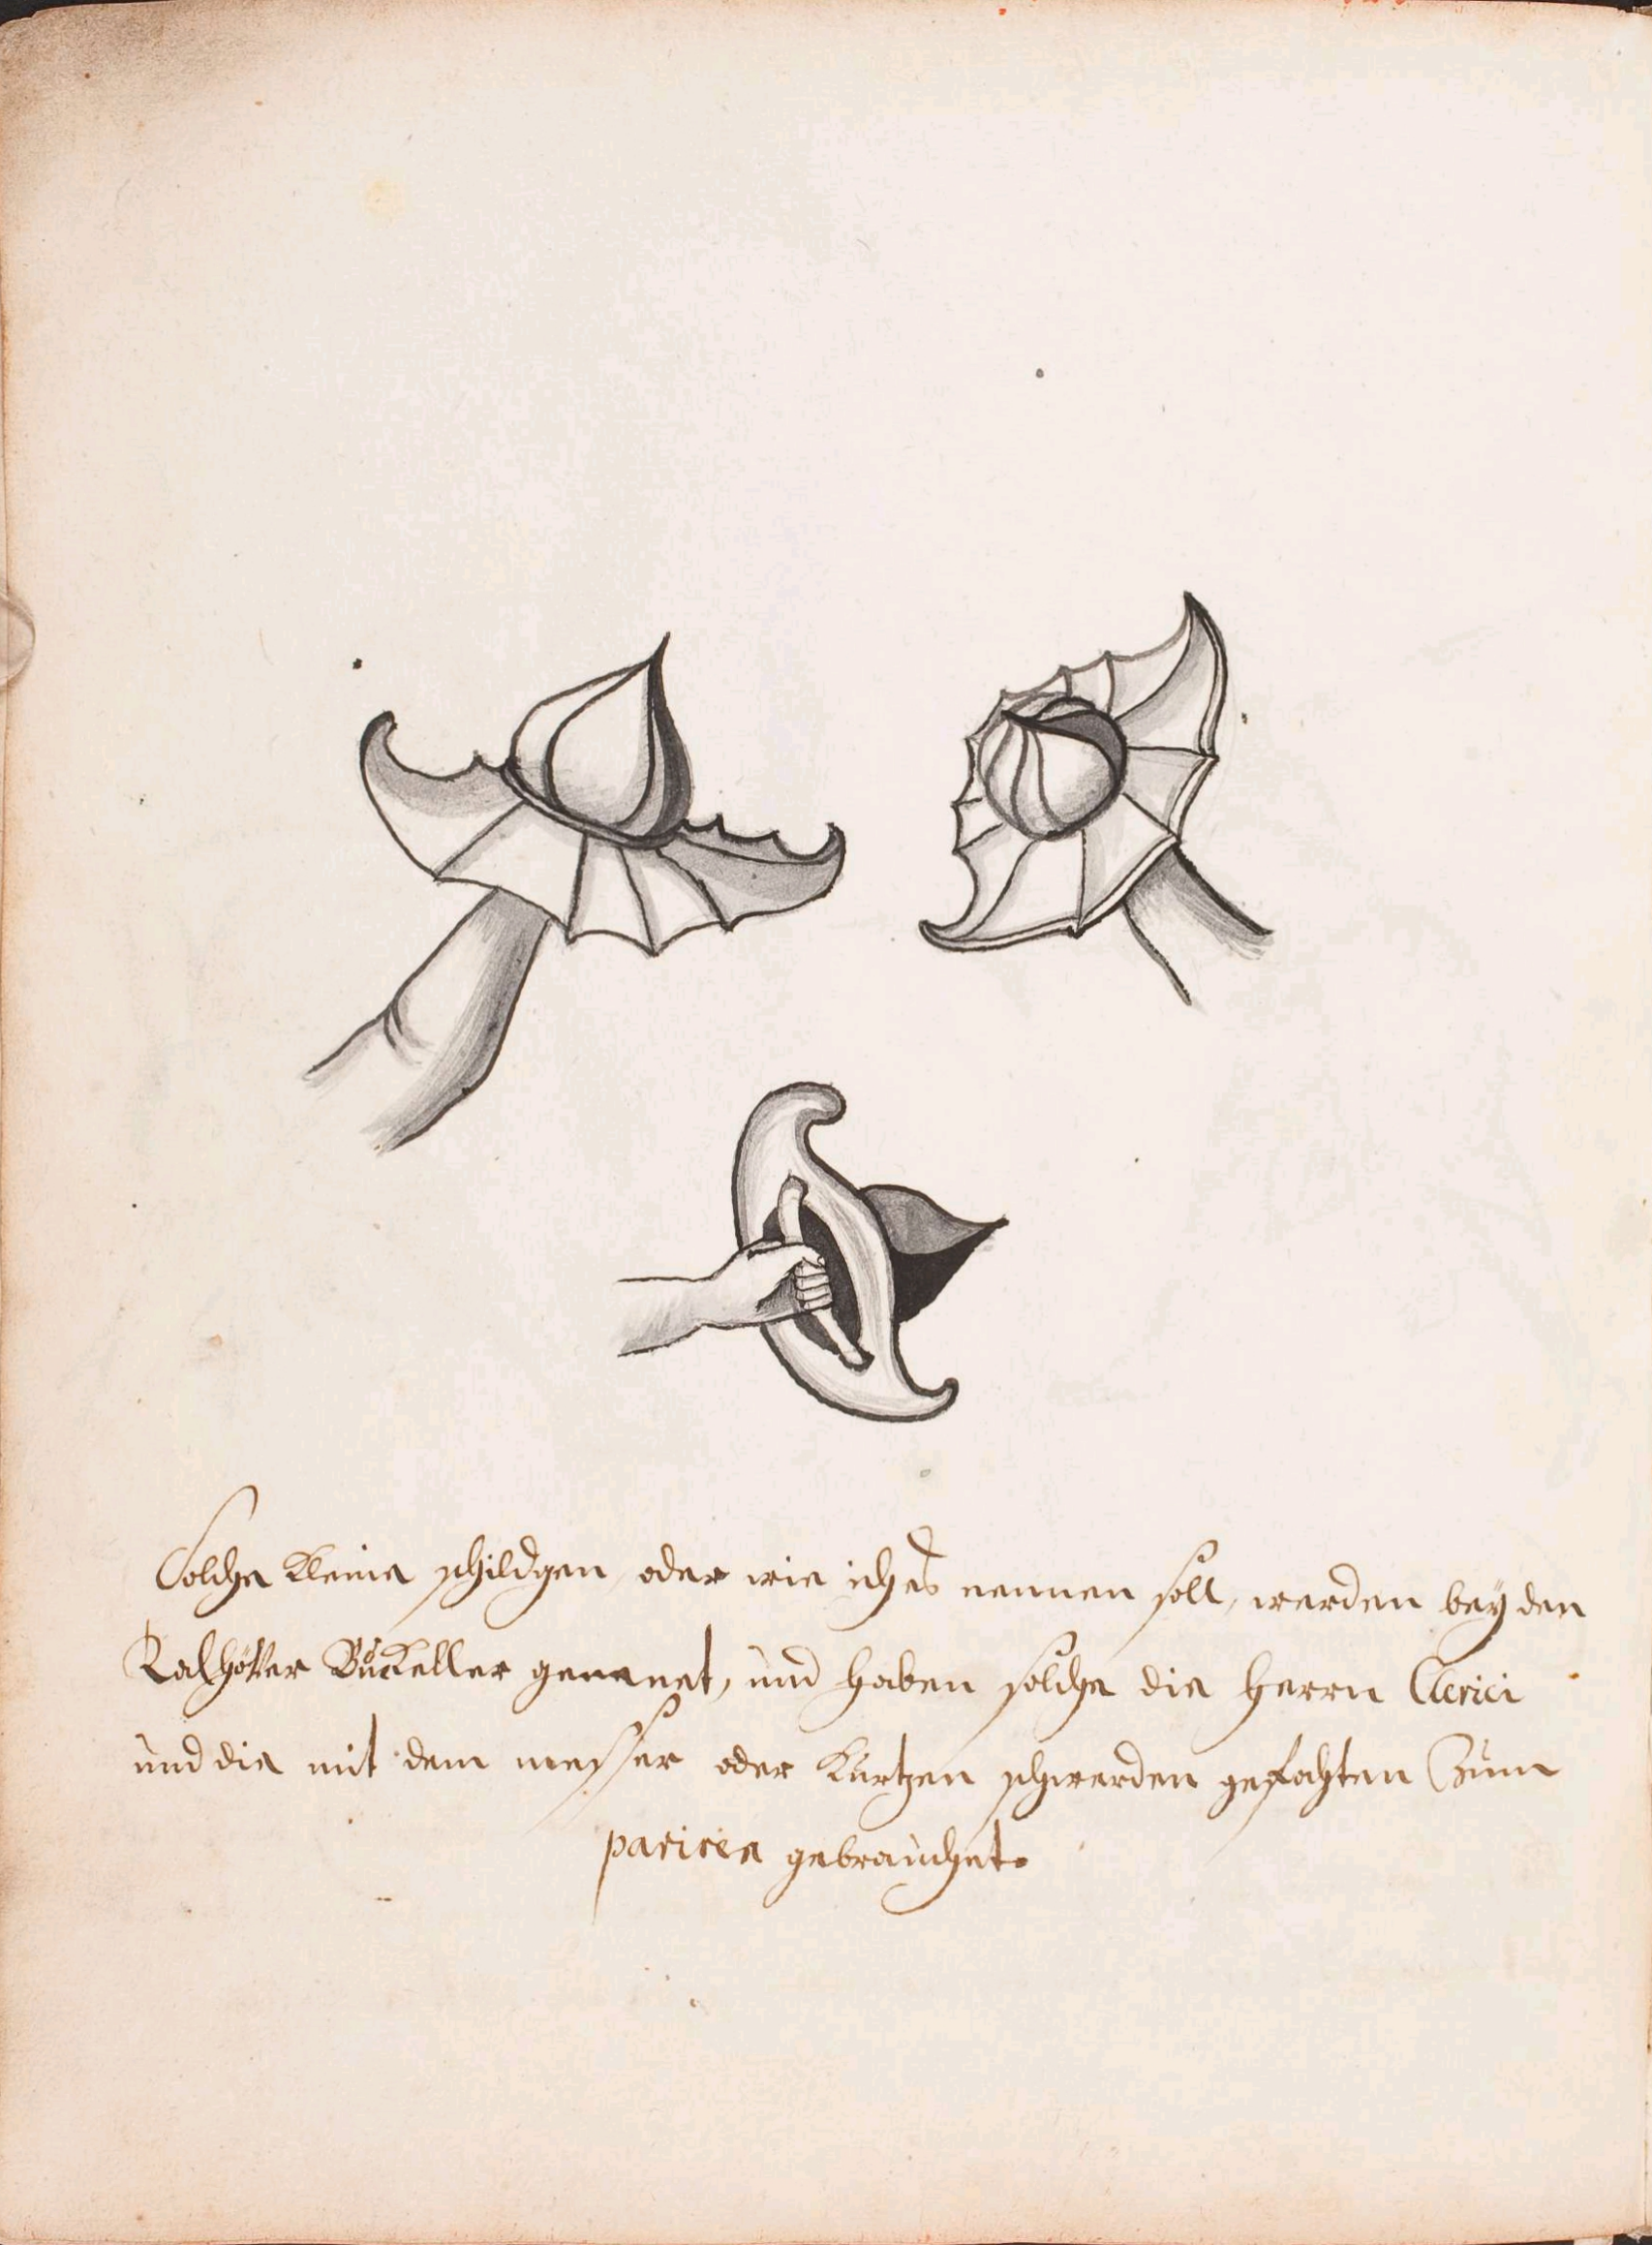 Solche kleine schildgen, oder wie ich es nennen soll, werden bey den
Buckeller genenet, und haben solche die Herrn Clerici
und die mit dem messer oder kurtzen schwerden gefochten Zum
pariren gebrauchet.